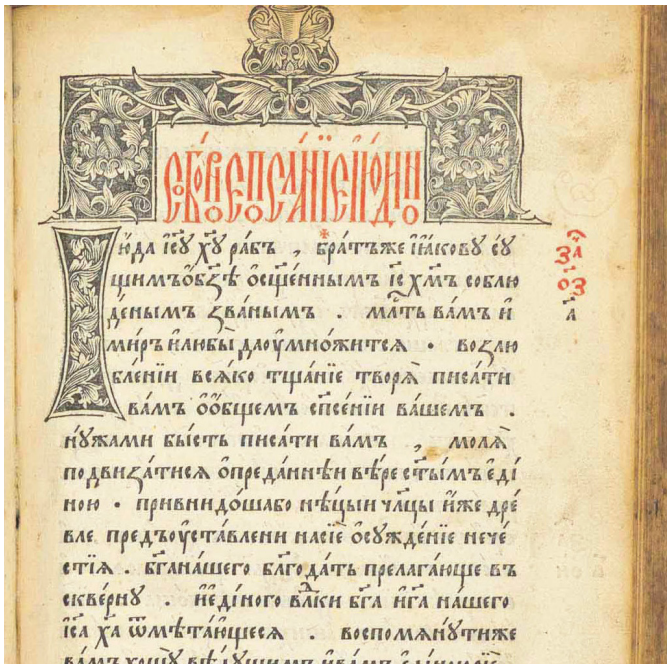 СОБОРНОЕ ПОСЛАНЇЕ ІЮДИНО
Їю́да і҆с҃ꙋ хс҃ꙋ ра́бъ , бра́тъже і҆а́ковꙋ сꙋ́
щимъ ѻ҆бз҃ѣ ѻ҆сщ҃е́ннымъ іс҃ хм҃ъ соблю
де́нымъ ꙁва́нымъ . мл҃ть ва́мъ и҆
ми́ръ и҆любы̀ даоу҆мно́жится . воꙁлю́
бленїи всѧ́ко тща́нїе творѧ̀ писа́ти
ва́мъ ѻ҆ѻ҆́бщемъ сп҃се́нїи ва́шемъ .
нꙋ́жами бы́сть писа́ти ва́мъ , молѧ̀
подвиꙁа́тисѧ ѻ҆преда́ннѣи вѣ́ре ст҃ы́мъ е҆ді́
ною . привнидо́шабо нѣ́цыи чл҃цы и҆́же дре́
вле предъоу҆ста́влени насїѐ ѻ҆сꙋжде́нїе нече́
стїѧ . бг҃ана́шего бл҃года́ть прелага́юще въ
скве́рнꙋ . и҆е҆ди́ного влⷣки бг҃а и҆гⷭ҇а на́шего
і҆с҃а х҃а ѿмѣта́ющесѧ . воспомѧнꙋ́тиже
ва́мъ хощꙋ̀ вѣ́дꙋщимъ
за
оз
гл҃а